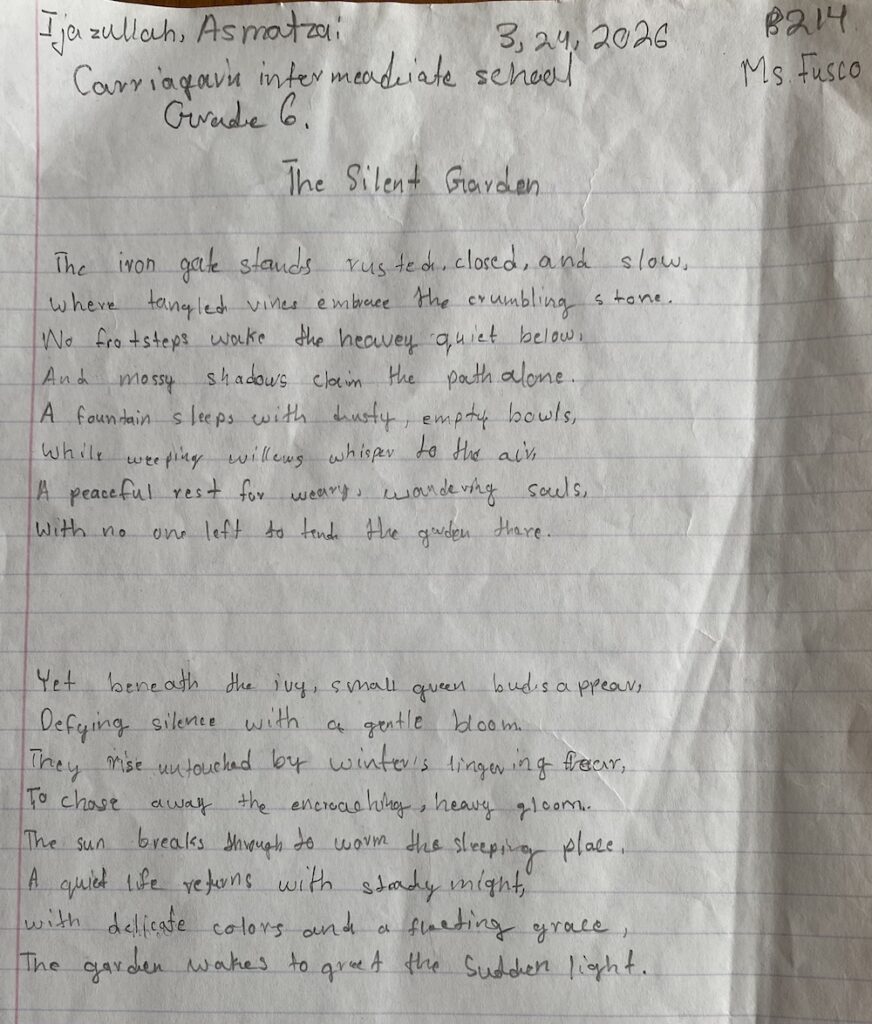 Ijazullah, Asmatzai 3, 24, 2026 B214
Carriagavin intermeadiate school Ms. Fusco
Grade 6.
The Silent Garden
The iron gate stands rusted, closed, and slow,
where tangled vines embrace the crumbling stone.
No frotsteps wake the heavey quiet below,
And mossy shadows claim the path alone.
A fountain sleeps with dusty, empty bowls,
While weeping willows whisper to the air,
A peaceful rest for weary, wandering souls,
With no one left to tend the garden there.
Yet beneath the ivy, small green buds appear,
Defying silence with a gentle bloom.
They rise untouched by winter's lingering fear,
To chase away the encroaching, heavy gloom.
The sun breaks through to warm the sleeping place,
A quiet life returns with steady might,
with delicate colors and a fleeting grace,
The garden wakes to greet the Sudden light.